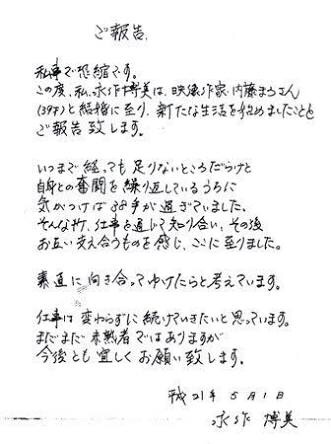 ご報告
私事で恐縮です。
この度、私、永作博美は、映像作家・内藤まろさん
(39才)と結婚に至り、新たな生活を始めましたことを
ご報告致します。
いつまで経っても足りないところだらけと
自身との奮闘を繰り返しているうちに
気がつけば38才が過ぎていました。
そんな折、仕事を通じて知り合い、その後
お互い支え合うものを感じ、ここに至りました。
素直に向き合ってゆけたらと考えています。
仕事は変わらずに続けていきたいと思っています。
まだまだ未熟者ではありますが
今後とも宜しくお願い致します。
平成21年5月1日
永作博美